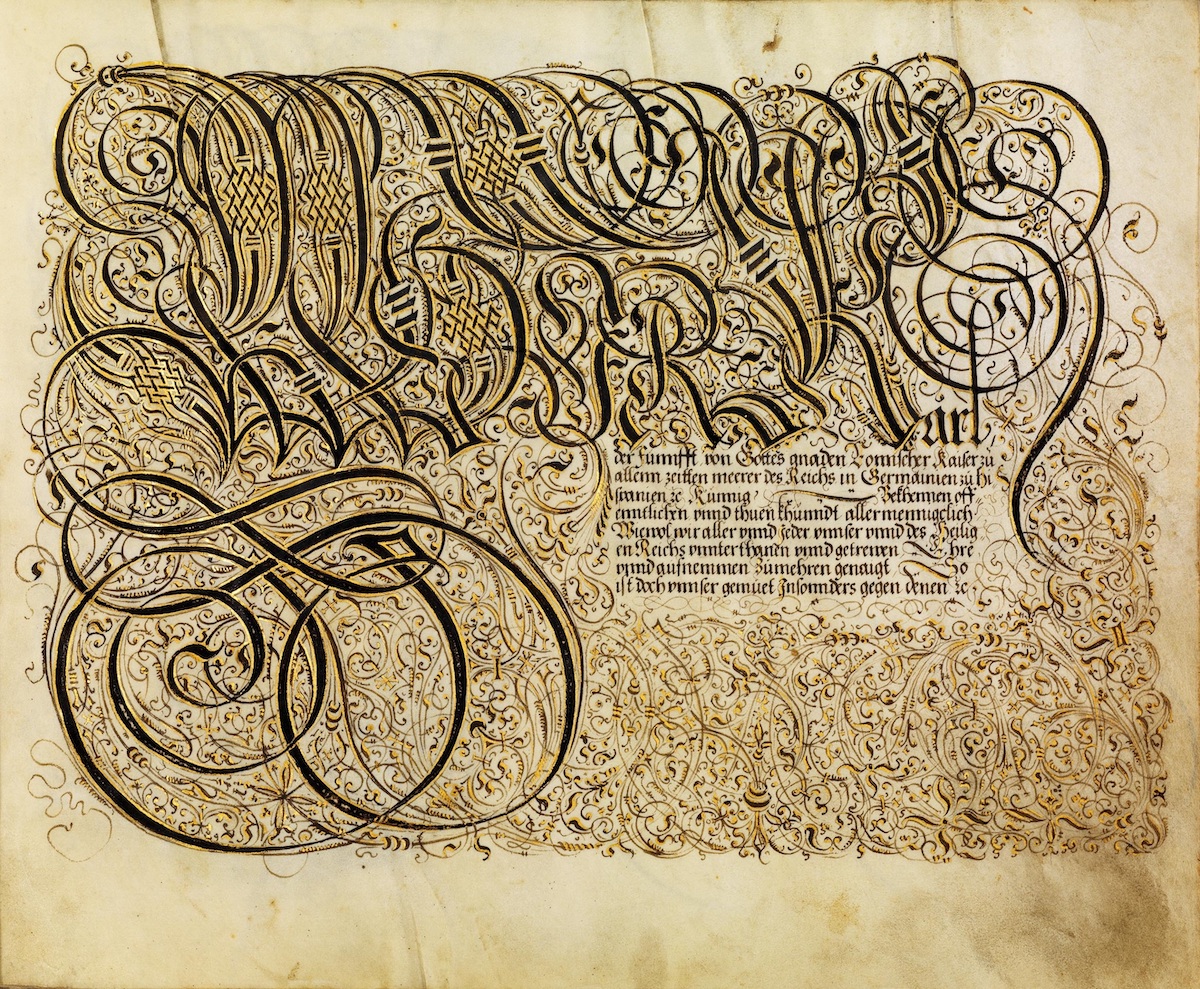 Wir Karl
der funnfft von Gottes gnaden Romischer Kaiser zu
allenn zeitten meerer des Reichs in Germanien zu hi
spanien ꝛc Kunnig Bekhennen off
enntlichen vnnd thuen khunndt allermennigclich
Wiewol wir aller vnnd Jeder vnnser vnnd des Heilig
en Reichs vnnterthanen vnnd getrewen Ehre
vnnd aufnemmen zumehren genaigt So
ist doch vnnser gemuet Insonnders gegen denen ꝛc